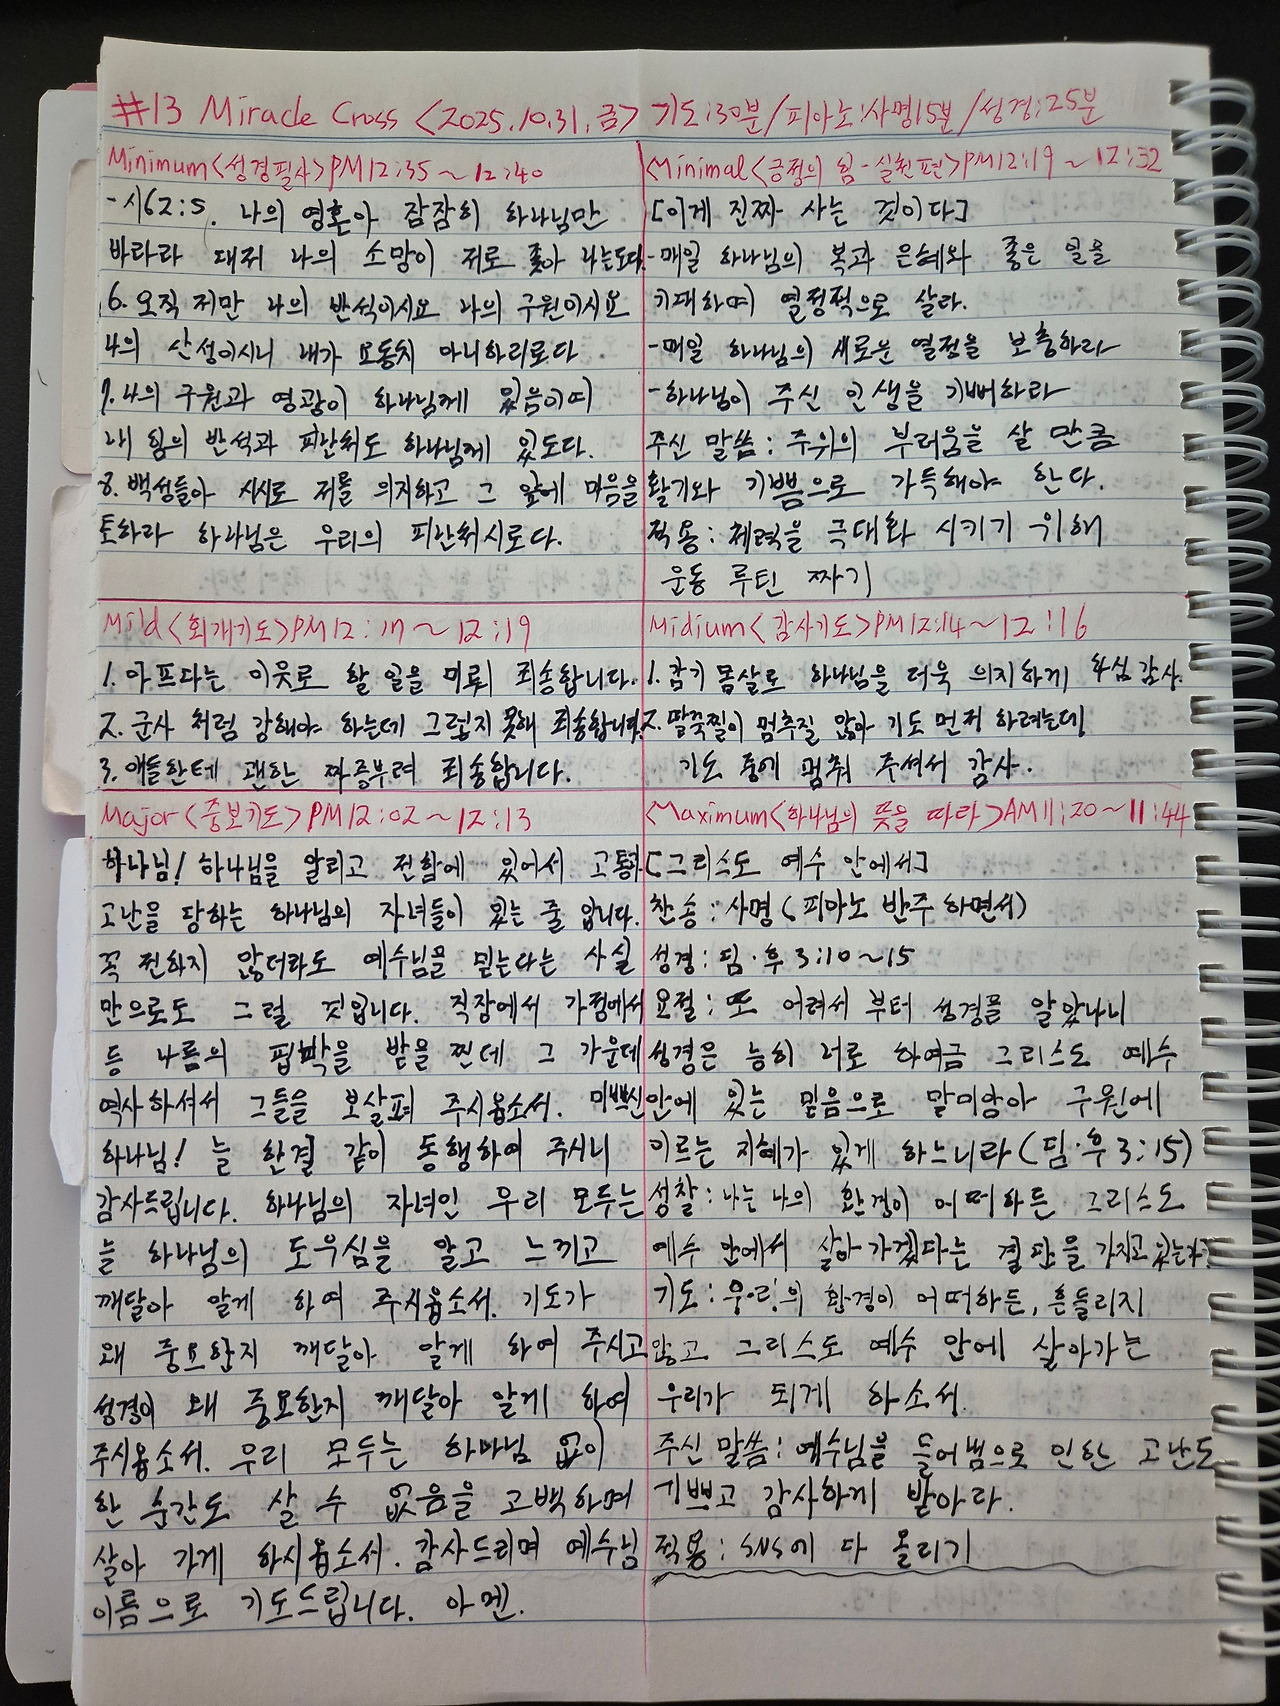 #13 Miracle Cross <2025.10.31.금> 기도:30분/피아노:사명15분/성경:25분
Minimum<성경필사>PM12:35~12:40
-시62:5. 나의 영혼아 잠잠히 하나님만
바라라 대저 나의 소망이 저로 좇아 나는도다.
6. 오직 저만 나의 반석이시요 나의 구원이시요
나의 산성이시니 내가 요동치 아니하리로다
7. 나의 구원과 영광이 하나님께 있음이여
내 힘의 반석과 피난처도 하나님께 있도다.
8. 백성들아 시시로 저를 의지하고 그 앞에 마음을
토하라 하나님은 우리의 피난처시로다.
<Minimal<긍정의 힘-실천편>PM12:19~12:32
[이게 진짜 사는 것이다]
-매일 하나님의 복과 은혜와 좋은 일을
기대하며 열정적으로 살라.
-매일 하나님의 새로운 열정을 보충하라
-하나님이 주신 인생을 기뻐하라
주신 말씀: 주위의 부러움을 살 만큼
활기와 기쁨으로 가득해야 한다.
적용: 체력을 극대화 시키기 위해
운동 루틴 짜기
Mild<회개기도>PM12:17~12:19
1. 아프다는 이웃로 할 일을 미뤄 죄송합니다.
2. 군사 처럼 강해야 하는데 그렇지 못해 죄송합니다.
3. 애들한테 괜한 짜증부려 죄송합니다.
Midium<감사기도>PM12:14~12:16
1. 감기 몸살로 하나님을 더욱 의지하게 하심 감사.
2. 딸꾹찔이 멈추질 않아 기도 먼저 하려는데
기도 중에 멈춰 주셔서 감사.
Major<중보기도>PM12:02~12:13
하나님! 하나님을 알리고 전함에 있어서 고통과
고난을 당하는 하나님의 자녀들이 있는 줄 압니다.
꼭 전하지 않더라도 예수님을 믿는다는 사실
만으로도 그럴 것입니다. 직장에서 가정에서
등 나름의 핍박을 받을 찐데 그 가운데
역사하셔서 그들을 보살펴 주시옵소서. 미쁘신
하나님! 늘 한결 같이 동행하여 주시니
감사드립니다. 하나님의 자녀인 우리 모두는
늘 하나님의 도우심을 알고 느끼고
깨달아 알게 하여 주시옵소서. 기도가
왜 중요한지 깨달아 알게 하여 주시고
성경이 왜 중요한지 깨달아 알게 하여
주시옵소서. 우리 모두는 하나님 없이
한 순간도 살 수 없음을 고백하며
살아 가게 하시옵소서. 감사드리며 예수님
이름으로 기도드립니다. 아멘.
<Maximum<하나님의 뜻을 따라>AM11:20~11:44
[그리스도 예수 안에서]
찬송: 사명(피아노 반주 하면서)
성경: 딤·후3:10~15
요절: 또 어려서 부터 성경을 알았나니
성경은 능히 너로 하여금 그리스도 예수
안에 있는 믿음으로 말미암아 구원에
이르는 지혜가 있게 하느니라(딤·후3:15)
성찰: 나는 나의 환경이 어떠하든 그리스도
예수 안에서 살아 가겠다는 결판을 가지고 있는가?
기도: 우리의 환경이 어떠하든, 흔들리지
않고 그리스도 예수 안에 살아가는
우리가 되게 하소서.
주신 말씀: 예수님을 들어냄으로 인한 고난도
기쁘고 감사하게 받아라.
적용: SNS에 다 올리기